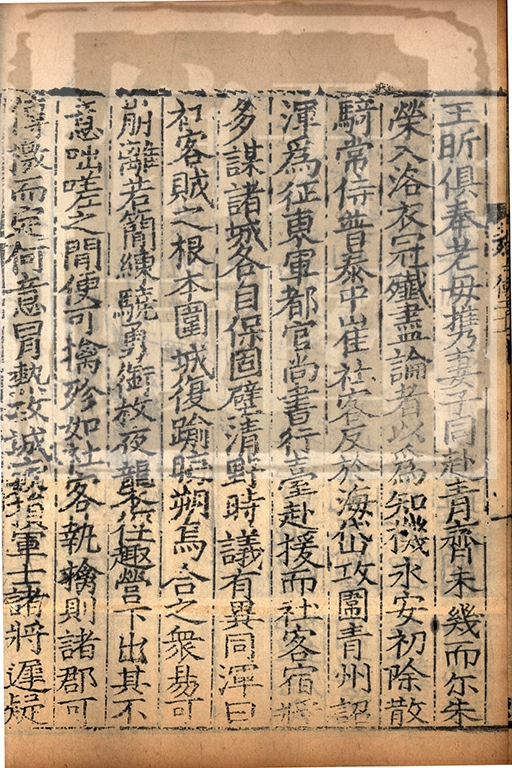 王昕俱奉老母擕妻子同赴青齊未幾而尒朱
榮入洛衣冠殲盡論者以爲知機永安初除散
騎常侍普泰中崔社客反於海岱攻圍青州詔
渾爲征東軍都官尚書行臺赴援而社客宿將
多謀諸城各自保固壁清野時議有異同渾曰
社客賊之根本圍城復踰晦朔烏合之衆易可
崩離若簡練驍勇銜枚夜襲徑趣營下出其不
意咄嗟之間便可擒殄如社客執擒則諸郡可
傳檄而定何意冒熱攻城疲損軍士諸將遲疑